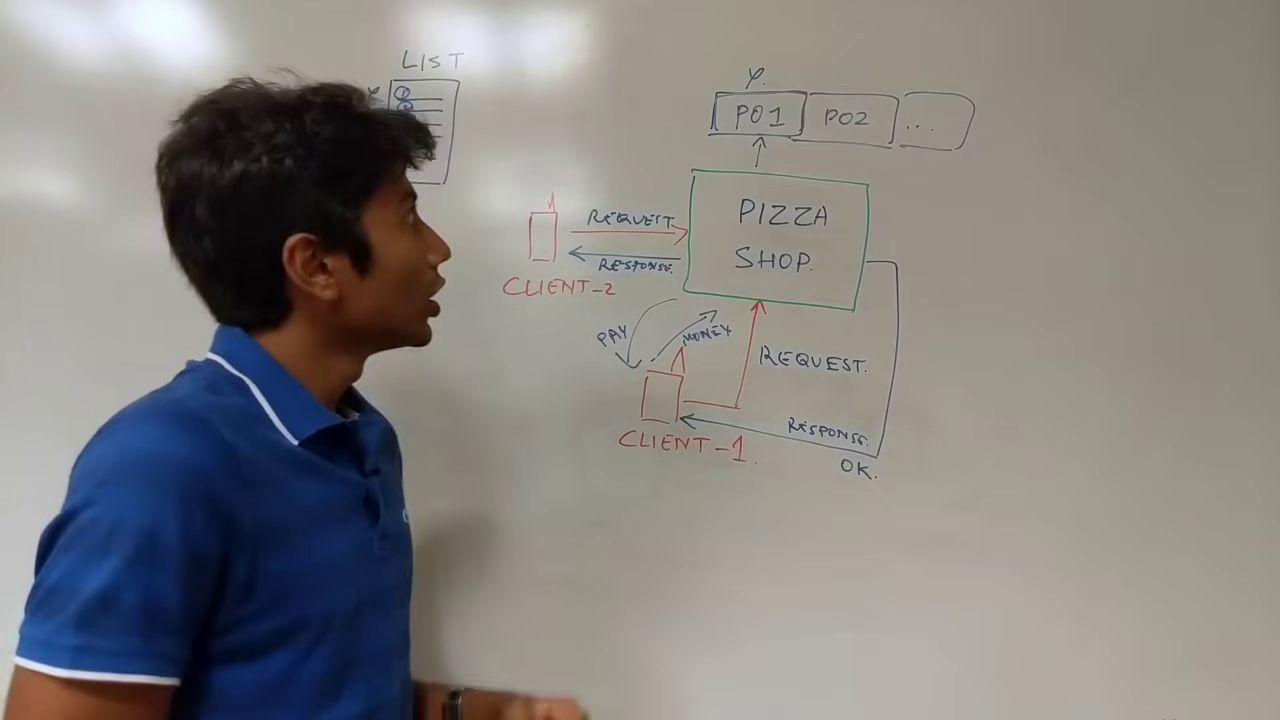 LIST
1
2
P01 P02 ...
PIZZA
SHOP.
REQUEST.
RESPONSE.
CLIENT-2
PAY
MONEY
REQUEST.
RESPONSE.
OK.
CLIENT-1.